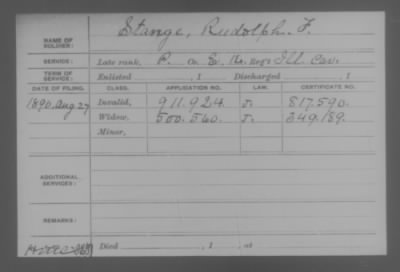 NAME OF SOLDIER: Stange, Rudolph. F.
SERVICE: Late rank, P. Co. E, Reg't Ill. Cav.
TERM OF SERVICE: Enlisted , 1 Discharged , 1
DATE OF FILING. CLASS. APPLICATION NO. LAW. CERTIFICATE NO.
1890, Aug 27 Invalid, 911.924. J. 817.590.
Widow, 500.560. J. 349.189.
Minor,
ADDITIONAL SERVICES:
REMARKS:
Died , 1 , at